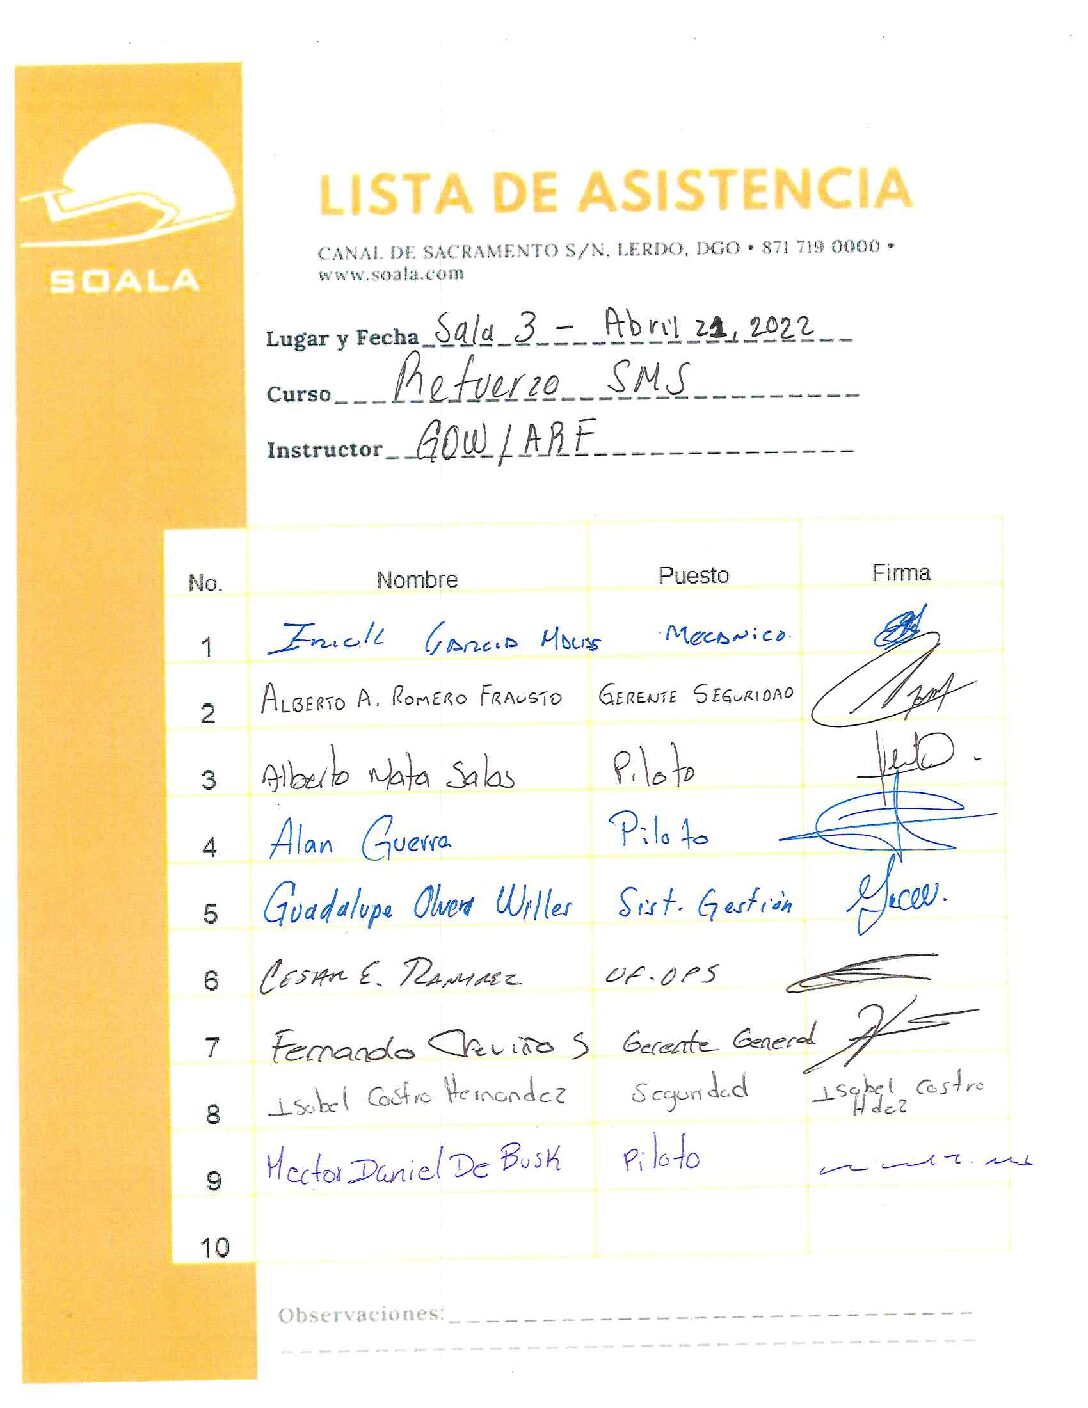 SOALA
LISTA DE ASISTENCIA
CANAL DE SACRAMENTO S/N, LERDO, DGO • 871 719 0000 •
www.soala.com
Lugar y Fecha Sala 3 - Abril 21, 2022
Curso Refuerzo SMS
Instructor GOW/ARF
No. Nombre Puesto Firma
1 Erick Garcia Mecanico
2 ALBERTO A. ROMERO FRAUSTO GERENTE SEGURIDAD
3 Alberto Mata Salas Piloto
4 Alan Guerra Piloto
5 Guadalupe Olvera Willes Sist. Gestión
6 CESAR E. RAMIREZ OF. OPS
7 Fernando Treviño S Gerente General
8 Isabel Castro Hernandez Seguridad Isabel Castro
Hdez
9 Hector Daniel De Busk Piloto
10
Observaciones: